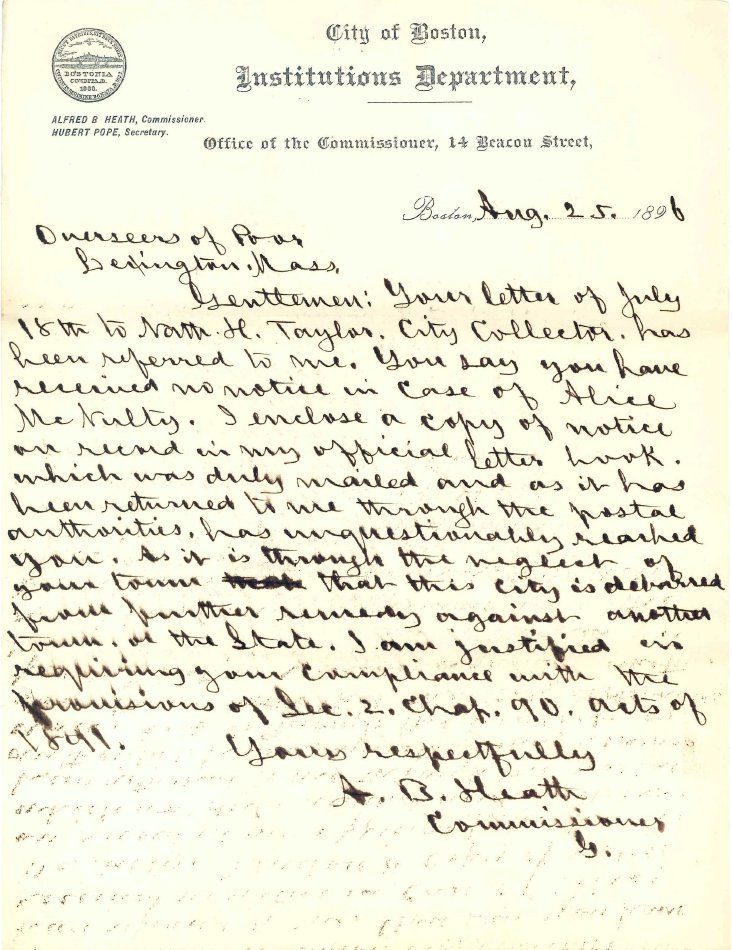 City of Boston,
Institutions Department,
BOSTONIA
CONDITA A.D.
1630.
ALFRED B HEATH, Commissioner.
HUBERT POPE, Secretary.
Office of the Commissioner, 14 Beacon Street,
Boston, Aug. 25. 1896
Overseers of Poor
Lexington. Mass.
Gentlemen: Your letter of July
18th to Nath. H. Taylor. City Collector. has
been referred to me. You say you have
received no notice in case of Alice
McNulty. I enclose a copy of notice
on record in my official letter book.
which was duly mailed and as it has
been returned to me through the postal
authorities, has unquestionably reached
you. As it is through the neglect of
your town that this city is debarred
from further remedy against another
town, or the State. I am justified in
requiring your compliance with the
provisions of Sec. 2. Chap. 90. acts of
1891.
Yours respectfully
A. B. Heath
Commissioner
G.